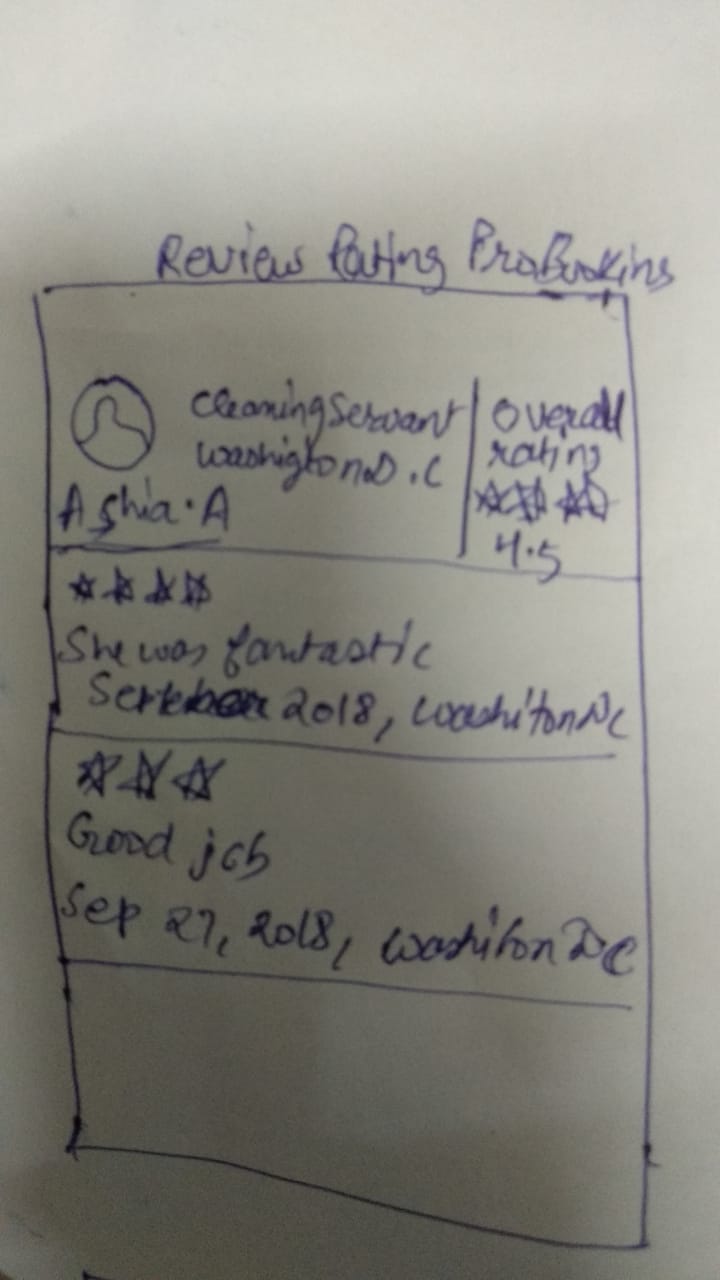 Review Rating ProBookins
cleaning Servant
washigton D.C
Ashia.A
Overall
rating
4.5
She was fantastic
2018, washiton DC
Good job
Sep 27, 2018, washiton DC